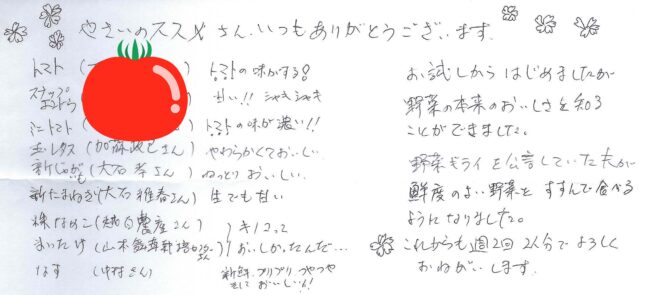 やさいのススメさん、いつもありがとうございます。
トマト( ) トマトの味がする!
スナップ
えんどう 甘い!! シャキシャキ
ミニトマト( トマトの味が濃い!!
玉レタス(加藤 さん) やわらかくておいしい
新じゃがいも(大石 孝さん) ねっとりおいしい
新たまねぎ(大石 雅春さん) 生でも甘い
株なめこ( 農産さん) キノコって
まいたけ(山本 さん) おいしかったんだ…
なす(中村さん) 新鮮、プリプリ、つやつや
そして おいしい!
お試しからはじめましたが
野菜の本来のおいしさを知る
ことができました。
野菜キライを公言していた夫が
鮮度のよい野菜を すすんで食べる
ようになりました。
これからも週2回 2人分でよろしく
おねがいします。